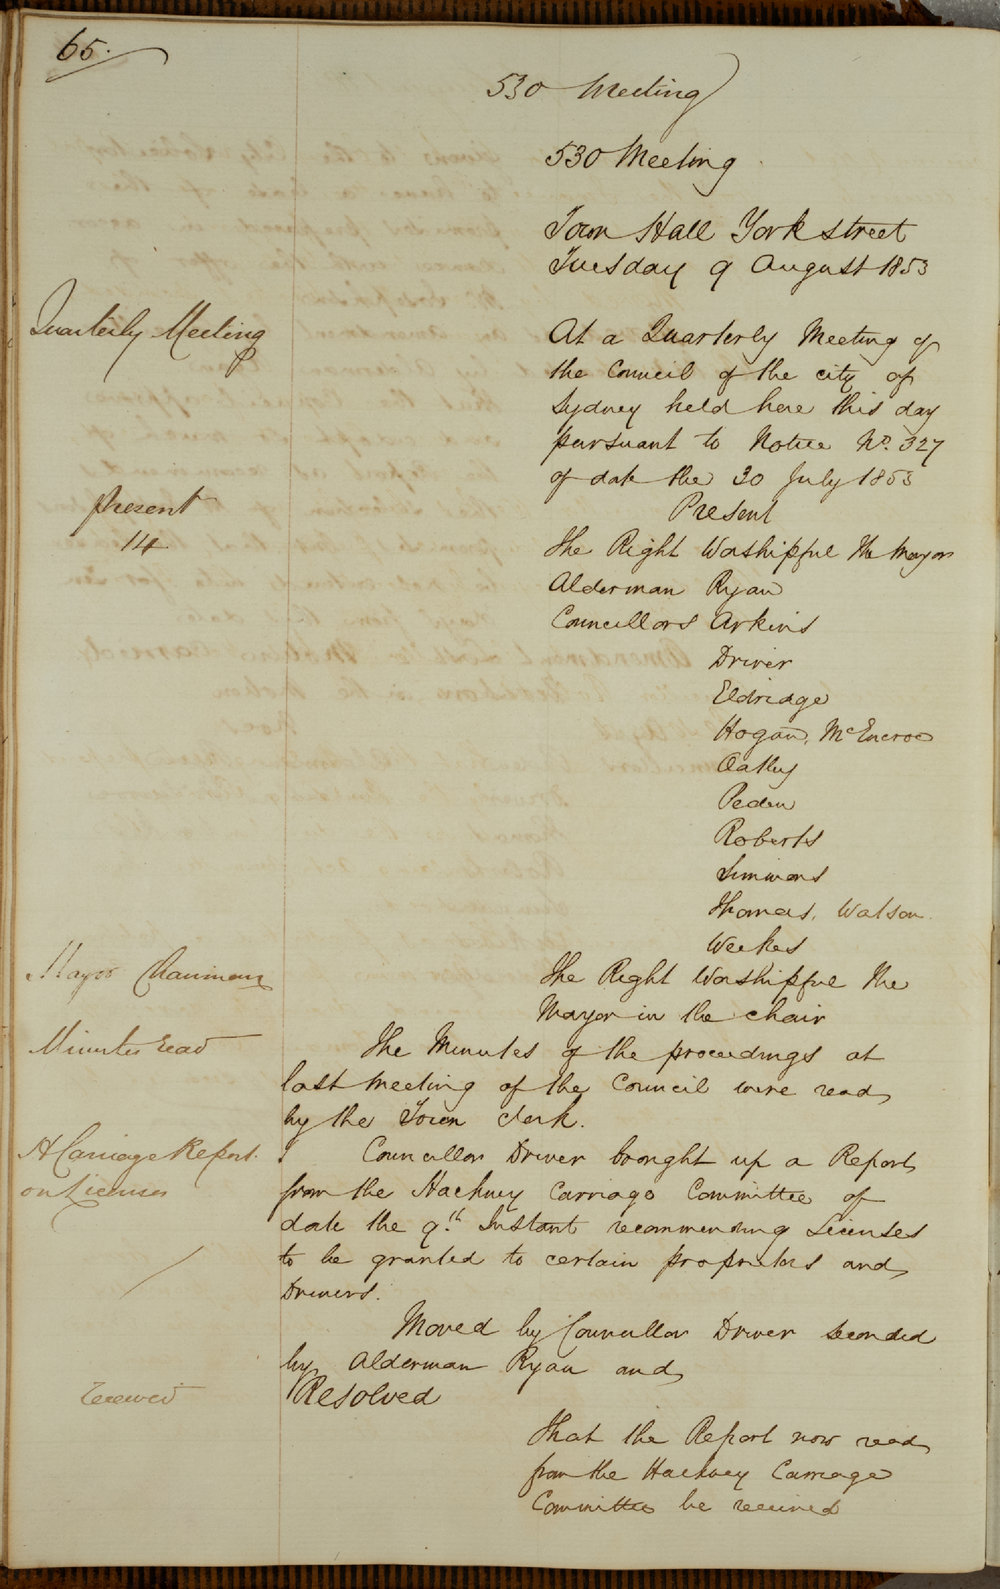 65.
530 Meeting
530 Meeting
Town Hall York street
Tuesday 9 August 1853
Quarterly Meeting
At a Quarterly Meeting of
the Council of the city of
Sydney held here this day
pursuant to Notice No. 327
of date the 30 July 1853
Present
Present
14
The Right Worshipful The Mayor
Alderman Ryan
Councillors Arkins
Driver
Eldridge
Hogan, McEncroe
Oatley
Peden
Roberts
Simmons
Thomas, Watson
Weekes
Mayor Chairman
The Right Worshipful The
Mayor in the chair
Minutes read
The Minutes of the proceedings at
last meeting of the Council were read
by the Town Clerk.
H Carriage Report
on Licenses
Councillor Driver brought up a Report
from the Hackney Carriage Committee of
date the 9th Instant recommending Licenses
to be granted to certain proprietors and
Drivers.
Moved by Councillor Driver seconded
by Alderman Ryan and
Resolved
received
That the Report now read
from the Hackney Carriage
Committee be received